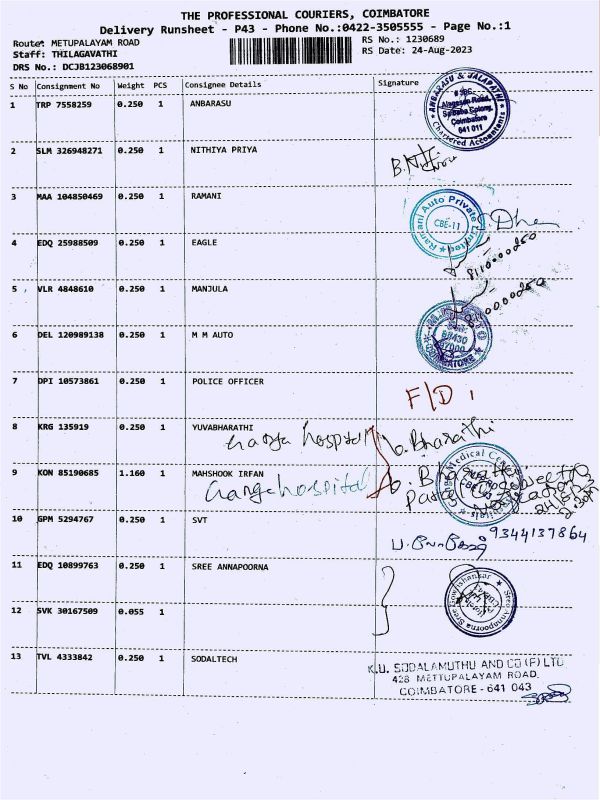 THE PROFESSIONAL COURIERS, COIMBATORE
Delivery Runsheet - P43 - Phone No.:0422-3505555 - Page No.:1
Route: METUPALAYAM ROAD
RS No.: 1230689
Staff: THILAGAVATHI
RS Date: 24-Aug-2023
DRS No.: DCJB123068901
S No Consignment No Weight PCS Consignee Details Signature
1 TRP 7558259 0.250 1 ANBARASU
ANBARASU & JALAPATHI
Alagesan Road,
Saibaba Colony,
Coimbatore
641 011
Chartered Accountants
2 SLM 326948271 0.250 1 NITHIYA PRIYA
3 MAA 104850469 0.250 1 RAMANI
Ramani Auto Private
CBE-11
4 EDQ 25988509 0.250 1 EAGLE
5 VLR 4848610 0.250 1 MANJULA
6 DEL 120989138 0.250 1 M M AUTO
COIMBATORE
7 DPI 10573861 0.250 1 POLICE OFFICER
F/D
8 KRG 135919 0.250 1 YUVABHARATHI
hospital Bharathi
9 KON 85190685 1.160 1 MAHSHOOK IRFAN
Ganga hospital
Medical
10 GPM 5294767 0.250 1 SVT
9344137864
11 EDQ 10899763 0.250 1 SREE ANNAPOORNA
Sree Annapoorna Sree Gowrishankar
12 SVK 30167509 0.055 1
13 TVL 4333842 0.250 1 SODALTECH
K.U. SODALAMUTHU AND CO (F) LTD
428 METTUPALAYAM ROAD.
COIMBATORE - 641 043